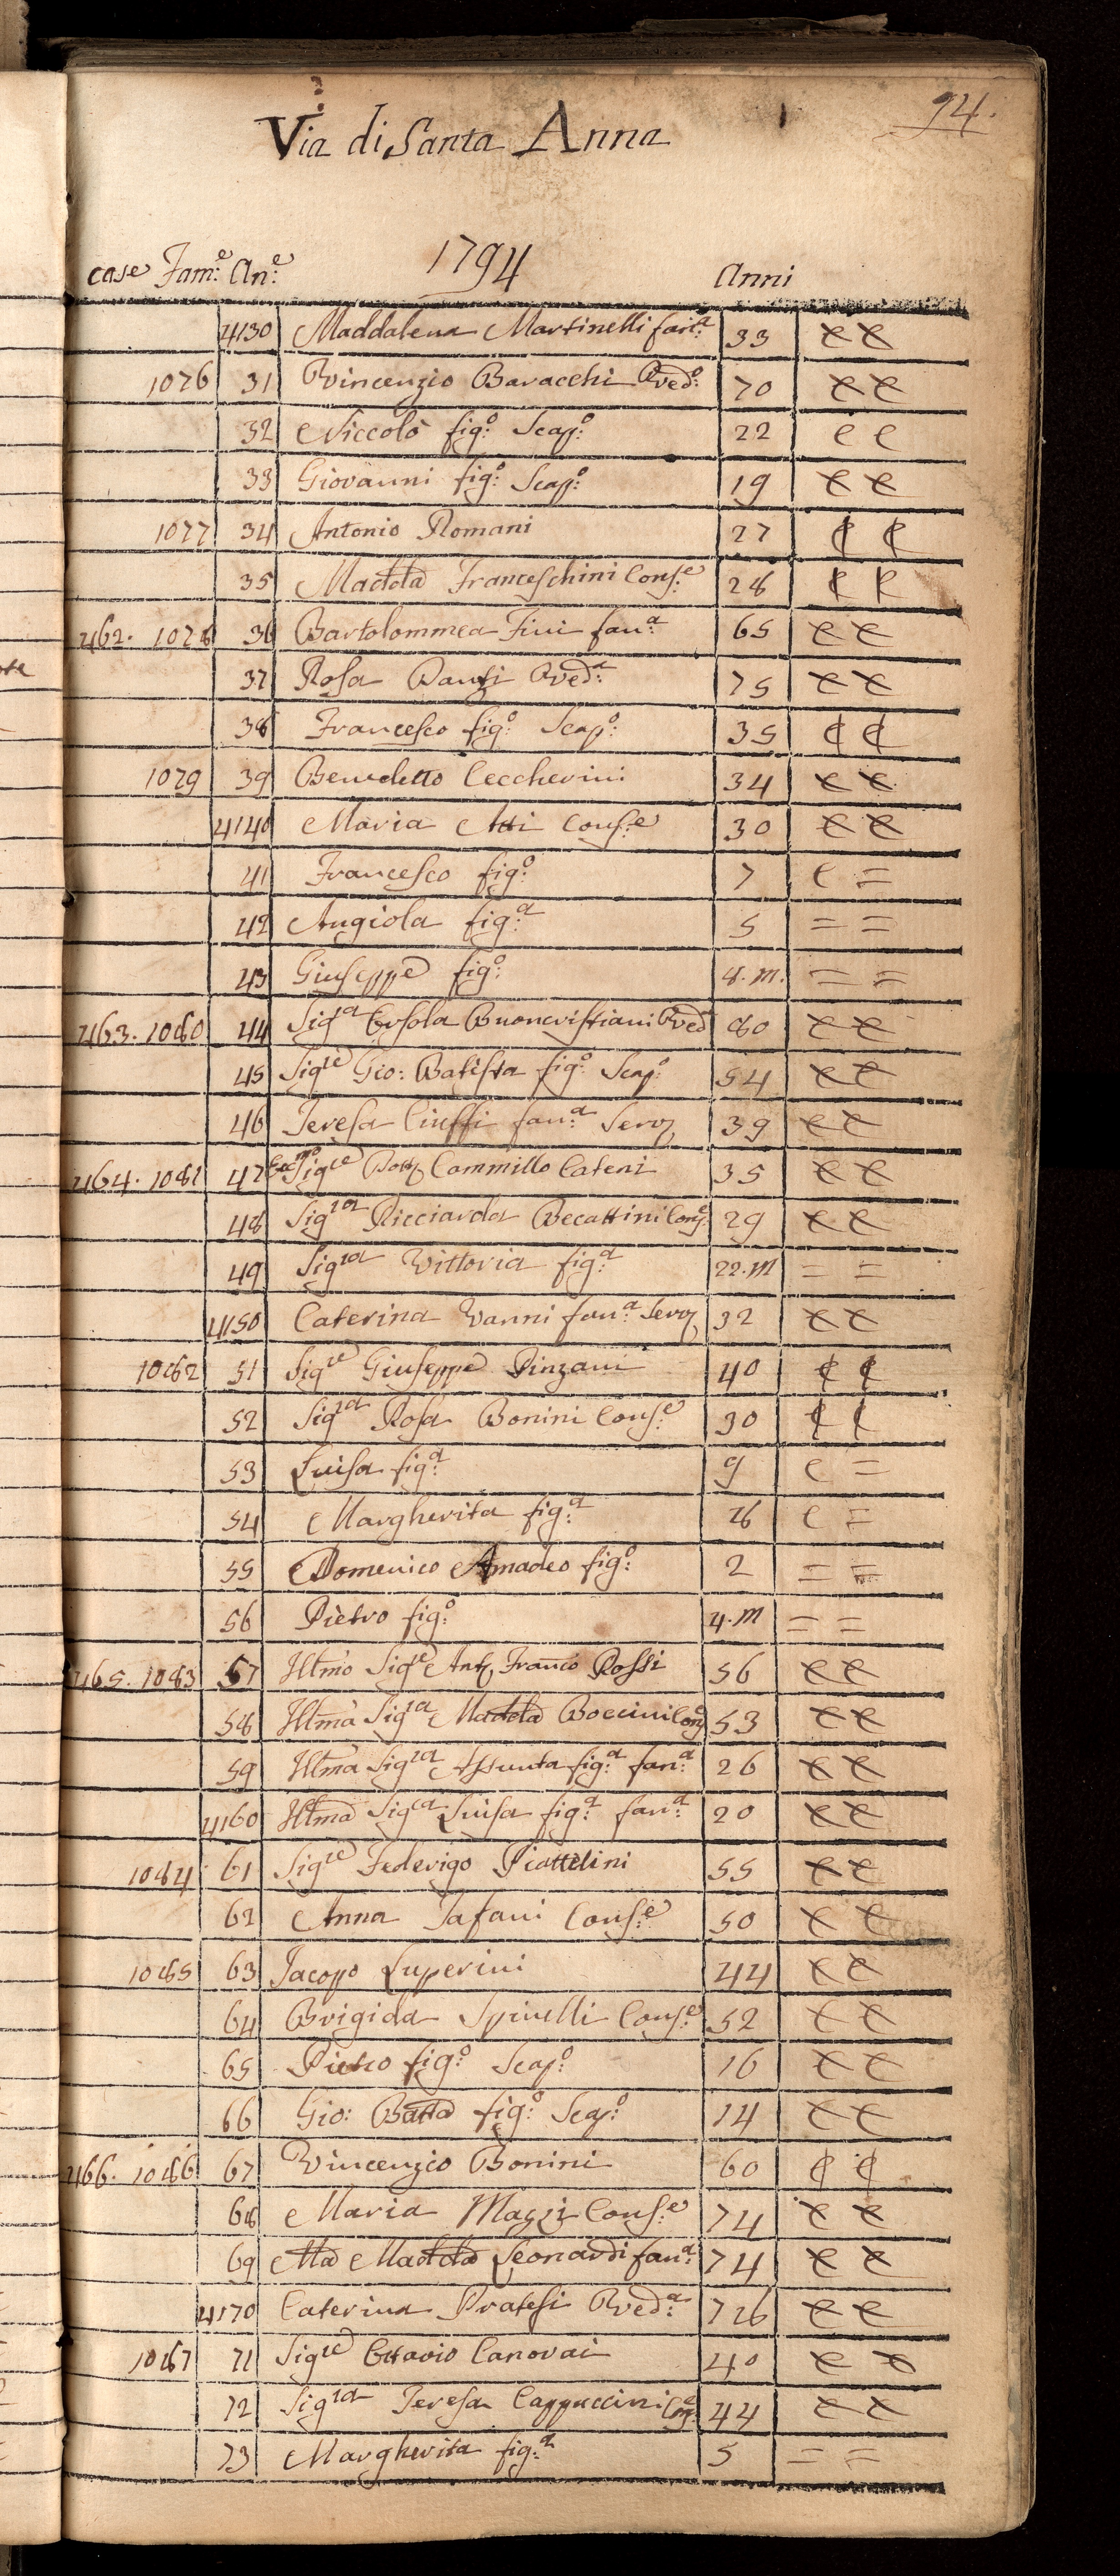 94.
Via di Santa Anna
1794
case Fam:e An:e Anni
4130 Maddalena Martinelli fan:a 33
1076 31 Vincenzio Baracchi Ved:o 70
32 Niccolò fig:o Scap:o 22 C C
33 Giovanni fig:o Scap:o 19
1077 34 Antonio Romani 27
35 Madd:a Franceschini Cons:e 28
462. 1078 36 Bartolommea Fini fan:a 65
37 Rosa Ved:a 75
38 Francesco fig:o Scap:o 35
1079 39 Benedetto Ceccherini 34
4140 Maria Atti Cons:e 30
41 Francesco fig:o 7 C =
42 Angiola fig:a 5 = =
43 Giuseppe fig:o 8. m. = =
463. 1080 44 Sig:ra Orsola Buoncristiani Ved:a 80
45 Sig:re Gio: Batista fig:o Scap:o 54
46 Teresa Ciuffi fan:a Serv 39
464. 1081 47 Ecc:mo Sig:re Dott Cammillo Cateni 35
48 Sig:ra Ricciarda Becattini Cons:e 29
49 Sig:ra Vittoria fig:a 22. m = =
4150 Caterina Vanni fan:a Serv 32
1082 51 Sig:re Giuseppe Pinzani 40
52 Sig:ra Rosa Bonini Cons:e 30
53 Luisa fig:a 9 C =
54 Margherita fig:a 8 C =
55 Domenico Amadeo fig:o 2 = =
56 Pietro fig:o 4. m = =
465. 1083 57 Illmo Sig:re Ant Franco Rossi 56
58 Illma Sig:ra Madd:a Boccini Cons:e 53
59 Illma Sig:ra Assunta fig:a fan:a 26
4160 Illma Sig:ra Luisa fig:a fan:a 20
1084 61 Sig:re Federigo Piattelini 55
62 Anna Tafani Cons:e 50
1085 63 Jacopo Luperini 44
64 Brigida Spinelli Cons:e 52
65 Pietro fig:o Scap:o 16
66 Gio: Batta fig:o Scap:o 14
466. 1086 67 Vincenzio Bonini 60
68 Maria Mazzi Cons:e 74
69 Ma Madd:a Leonardi fan:a 74
4170 Caterina Pratesi Ved:a 78
1087 71 Sig:re Ottavio Canovai 40
72 Sig:ra Teresa Cappuccini Cons:e 44
73 Margherita fig:a 5 = =